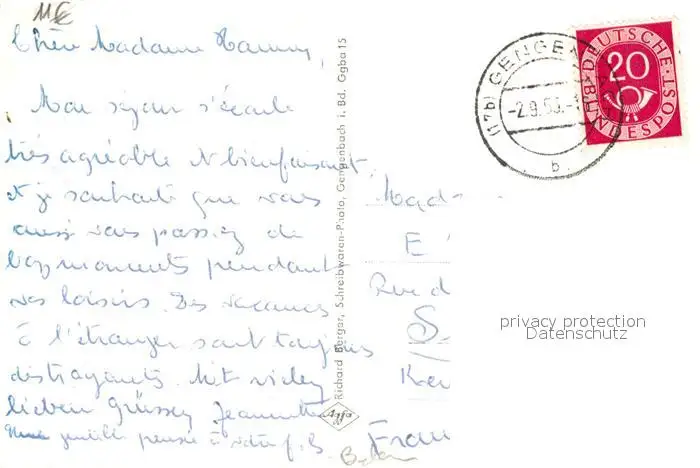 Chère Madame
Mon séjour s'écoule
très agréable et bienfaisant,
et je souhaite que vous
aussi vous passiez de
bons moments pendant
vos loisirs. Des vacances
à l'étranger sont toujours
distrayants. Mit vielen
lieben Grüssen Jeannette
gentille pensée à votre
Richard Berger, Schreibwaren-Photo, Gengenbach i. Bd. Ggba 15
Agfa
DEUTSCHE BUNDESPOST
20
(17b) GENGEN
-2.9.53.-
b
Mad
E
Rue d
S
Fran
privacy protection
Datenschutz